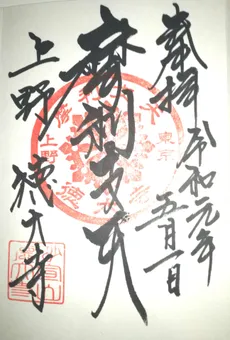 奉拝 令和元年
五月一日
摩利支天
上野 徳大寺
東京
上野